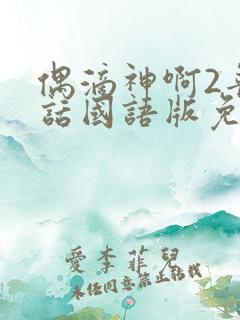 偶滴神啊2粵
話國語版免
愛李菲兒
未經同意禁止轉載